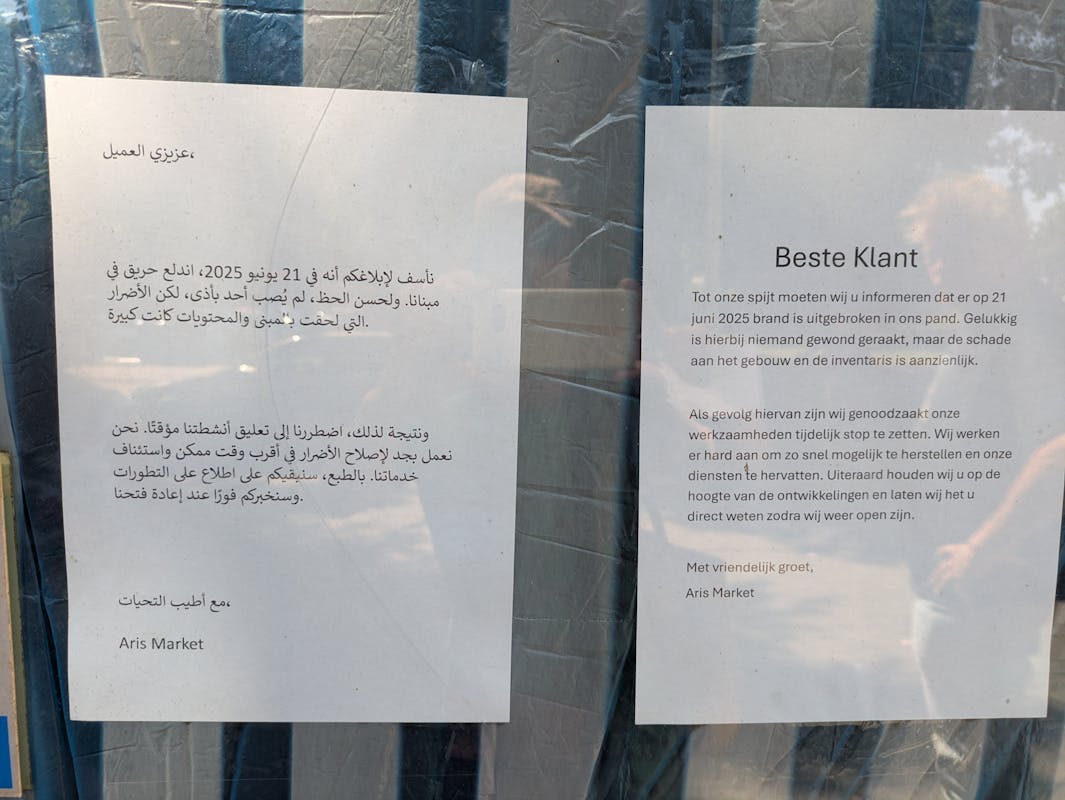 عزيزي العميل،
نأسف لإبلاغكم أنه في 21 يونيو 2025، اندلع حريق في
مبنانا. ولحسن الحظ، لم يُصب أحد بأذى، لكن الأضرار
التي لحقت بالمبنى والمحتويات كانت كبيرة.
ونتيجة لذلك، اضطررنا إلى تعليق أنشطتنا مؤقتًا. نحن
نعمل بجد لإصلاح الأضرار في أقرب وقت ممكن واستئناف
خدماتنا. بالطبع، سنبقيكم على اطلاع على التطورات
وسنخبركم فورًا عند إعادة فتحنا.
مع أطيب التحيات،
Aris Market
Beste Klant
Tot onze spijt moeten wij u informeren dat er op 21
juni 2025 brand is uitgebroken in ons pand. Gelukkig
is hierbij niemand gewond geraakt, maar de schade
aan het gebouw en de inventaris is aanzienlijk.
Als gevolg hiervan zijn wij genoodzaakt onze
werkzaamheden tijdelijk stop te zetten. Wij werken
er hard aan om zo snel mogelijk te herstellen en onze
diensten te hervatten. Uiteraard houden wij u op de
hoogte van de ontwikkelingen en laten wij het u
direct weten zodra wij weer open zijn.
Met vriendelijk groet,
Aris Market